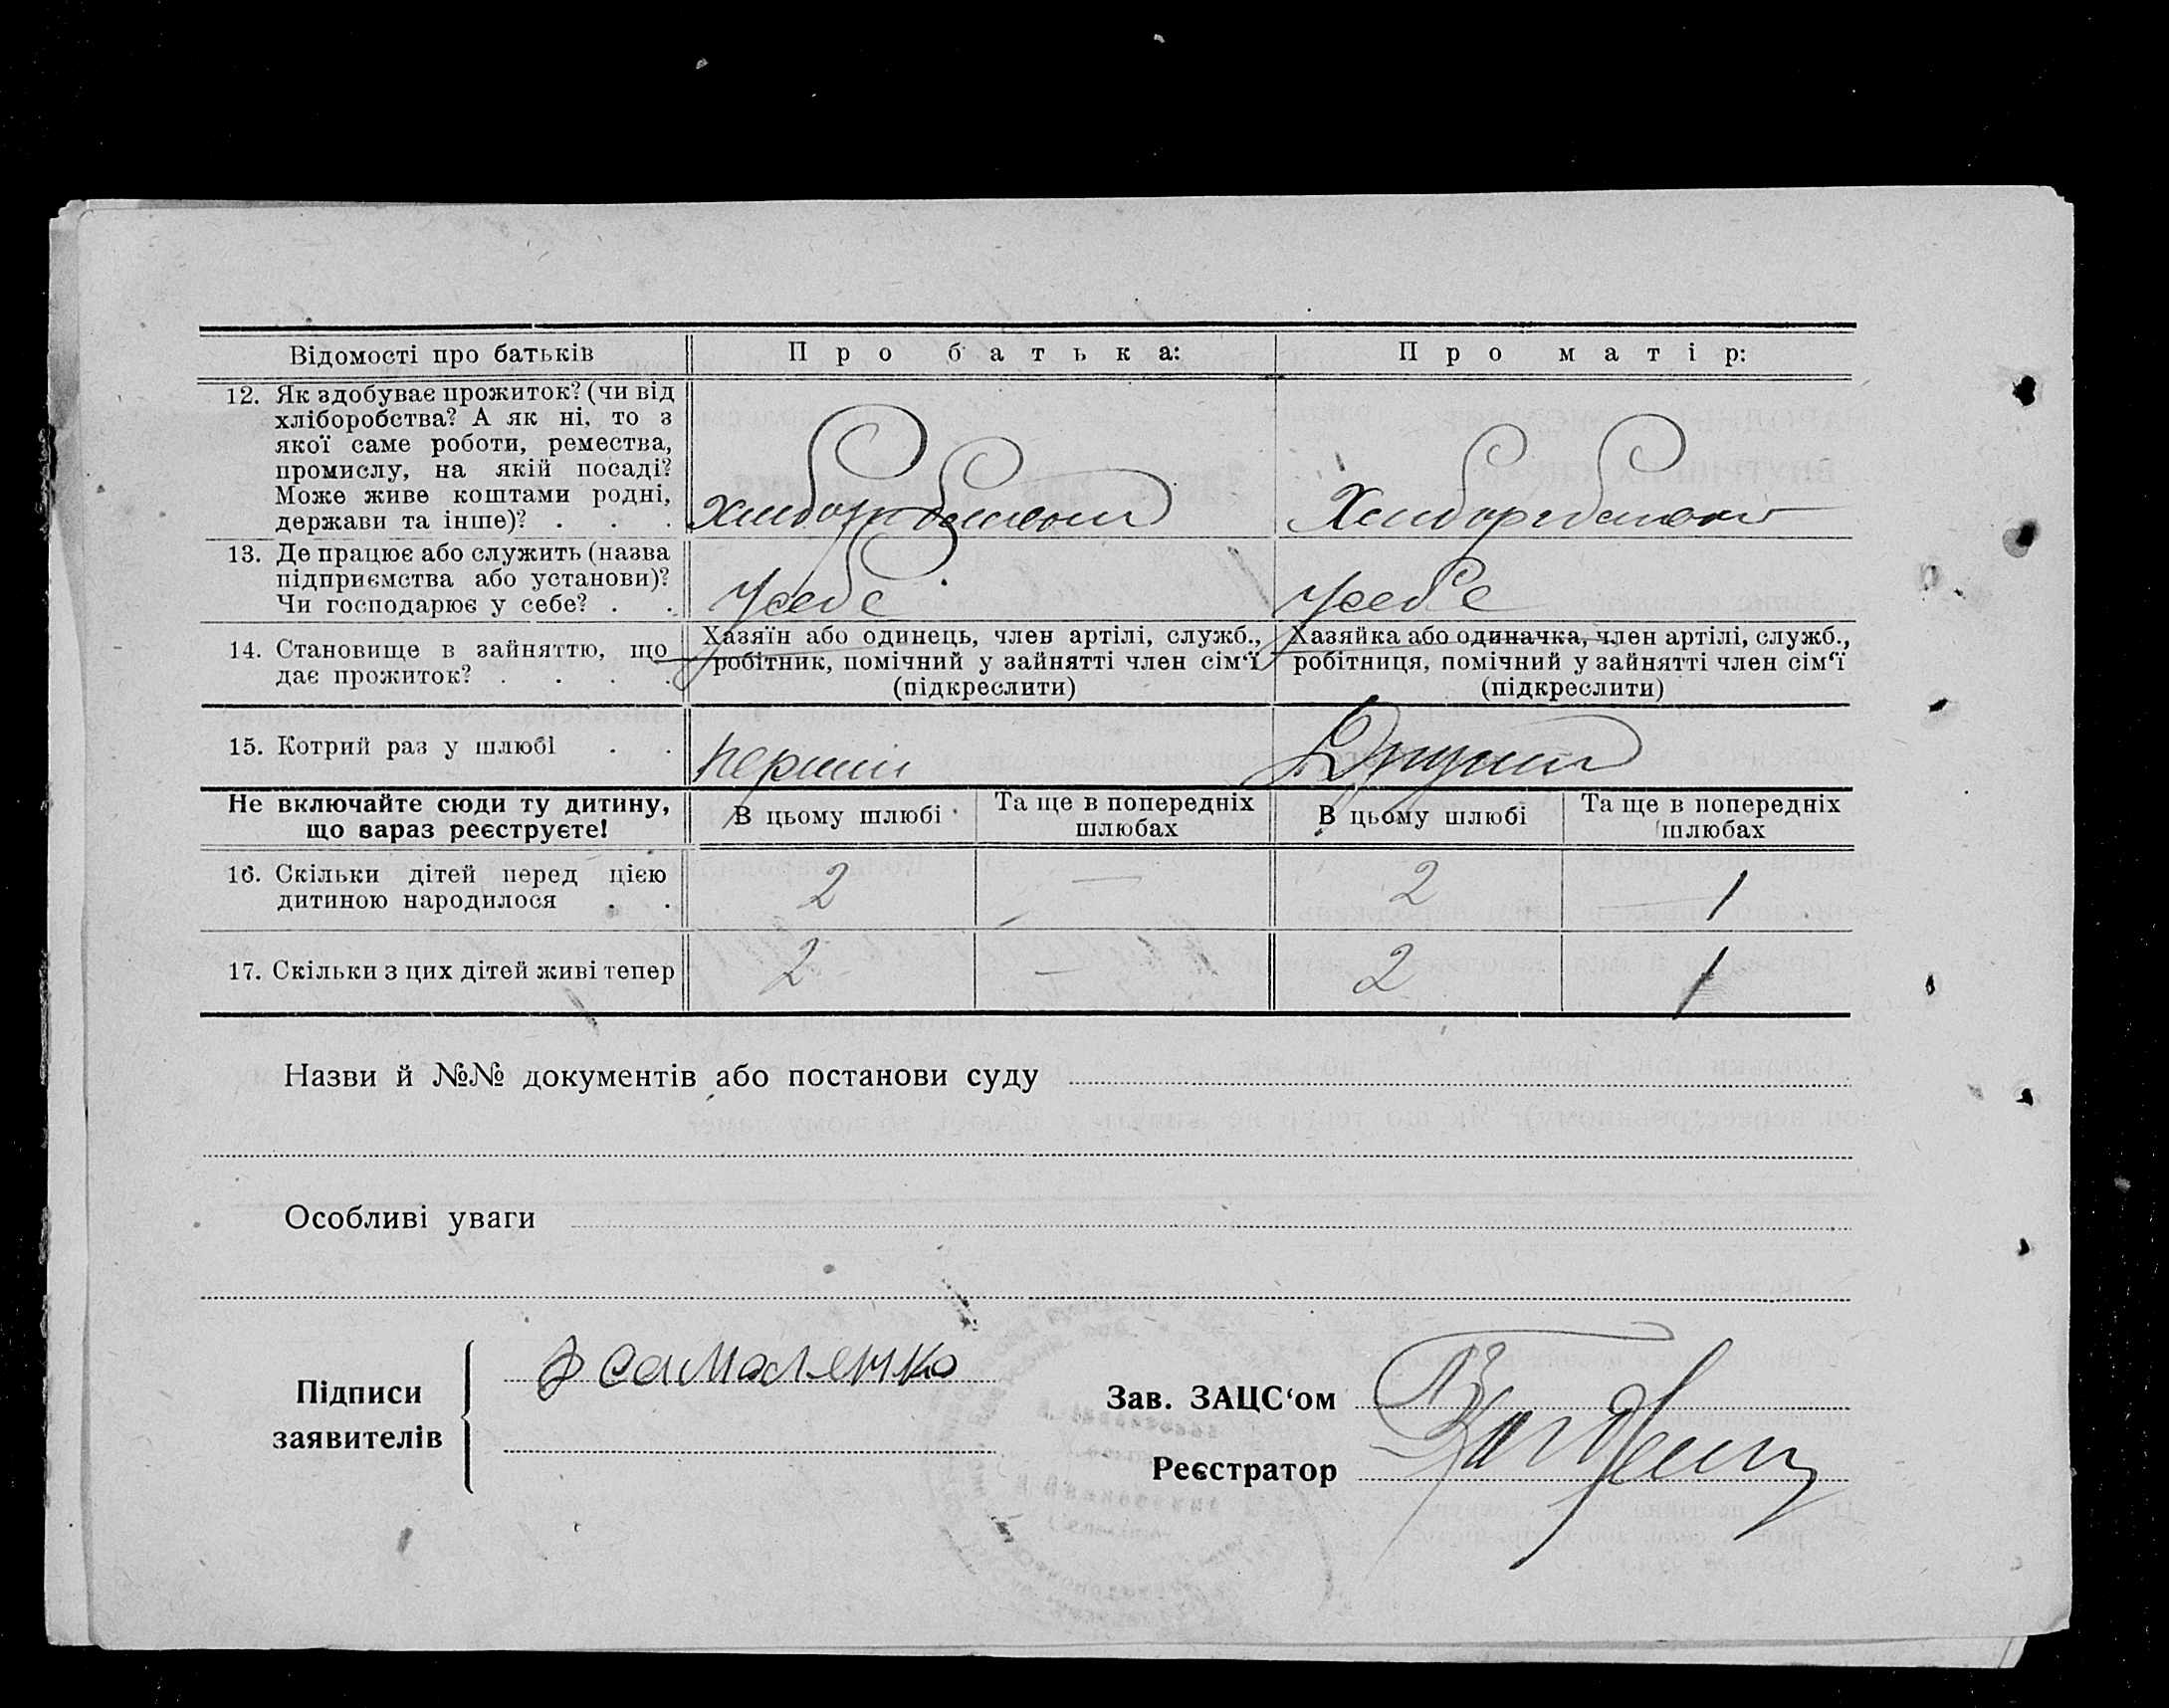 Відомості про батьків
Про батька:
Про матір:
12. Як здобуває прожиток? (чи від
хліборобства? А як ні, то з
якої саме роботи, ремества,
промислу, на якій посаді?
Може живе коштами родні,
держави та інше)? . . .
Хлиборобством
Хлиборобством
13. Де працює або служить (назва
підприємства або установи)?
Чи господарює у себе? . .
У себе
У себе
14. Становище в зайняттю, що
дає прожиток? . . . .
Хазяїн або одинець, член артілі, служб.,
робітник, помічний у зайнятті член сім'ї
(підкреслити)
Хазяйка або одиначка, член артілі, служб.,
робітниця, помічний у зайнятті член сім'ї
(підкреслити)
15. Котрий раз у шлюбі . .
перший
Другий
Не включайте сюди ту дитину,
що зараз реєструєте!
В цьому шлюбі
Та ще в попередніх
шлюбах
В цьому шлюбі
Та ще в попередніх
шлюбах
16. Скільки дітей перед цією
дитиною народилося . .
2 — 2 1
17. Скільки з цих дітей живі тепер
2 — 2 1
Назви й №№ документів або постанови суду
Особливі уваги
Підписи
заявителів
самаленко
Зав. ЗАЦС'ом
Реєстратор